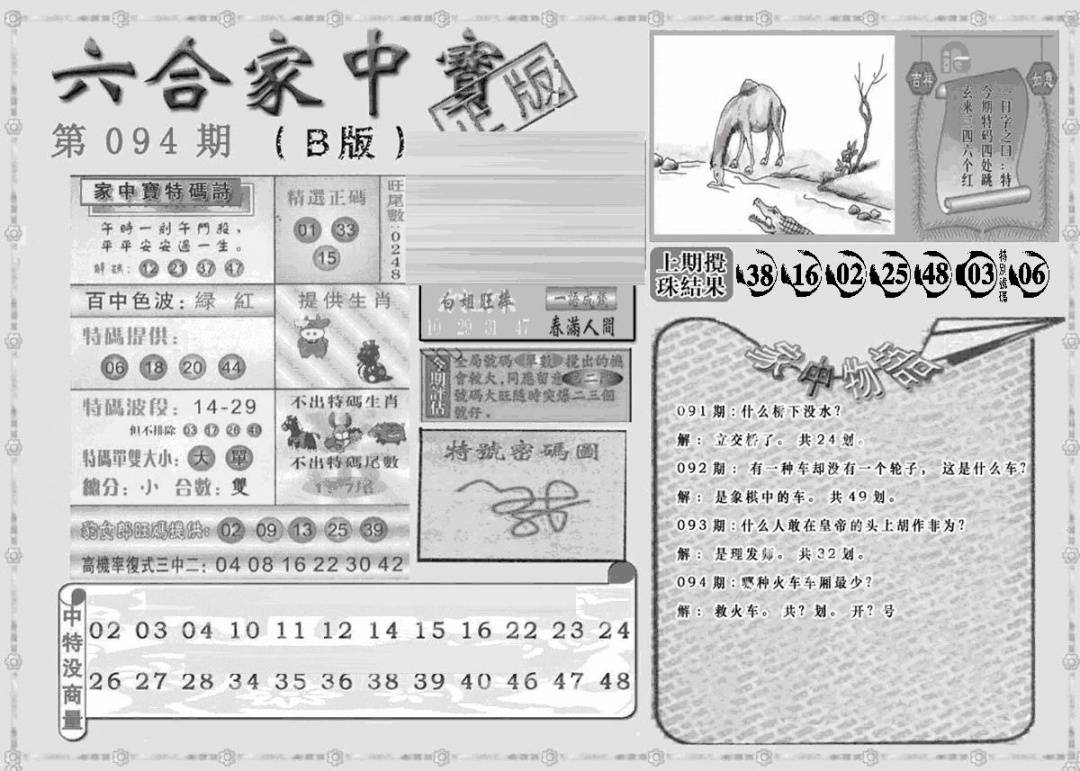 六合家中寶
正版
第094期 （B版）
家中寶特碼詩
午時一刻午門殺，
平平安安過一生。
解碼: 12 21 37 47
精選正碼
01 33
15
旺尾數:0248
百中色波: 緑 紅
提供生肖
特碼提供:
06 18 20 44
特碼波段: 14-29
但不排除 03 17 26
特碼單雙大小: 大 單
總分: 小 合數: 雙
不出特碼生肖
不出特碼尾數
旺碼提供: 02 09 13 25 39
高機率復式三中二: 04 08 16 22 30 42
10 29 31 47
春滿人間
今期評估
全局號碼 單數 攪出的機
會較大,同應留意
號碼大旺隨時突爆二三個
號仔。
特號密碼圖
中特没商量
02 03 04 10 11 12 14 15 16 22 23 24
26 27 28 34 35 36 38 39 40 46 47 48
吉祥
如意
一日字之曰:特
今期特码四处跳
玄来二四六个红
上期攪珠結果
38 16 02 25 48 03 特別號碼 06
091期:什么桥下没水?
解: 立交桥了。 共24划。
092期: 有一种车却没有一个轮子, 这是什么车?
解: 是象棋中的车。 共49划。
093期:什么人敢在皇帝的头上胡作非为?
解: 是理发师。 共32划。
094期:哪种火车车厢最少?
解: 救火车。 共?划。 开?号